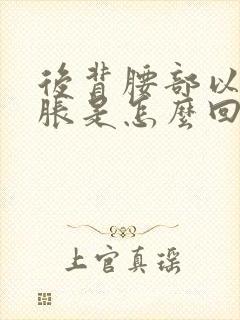 後背腰部以
脹是怎麼回
上官真瑤